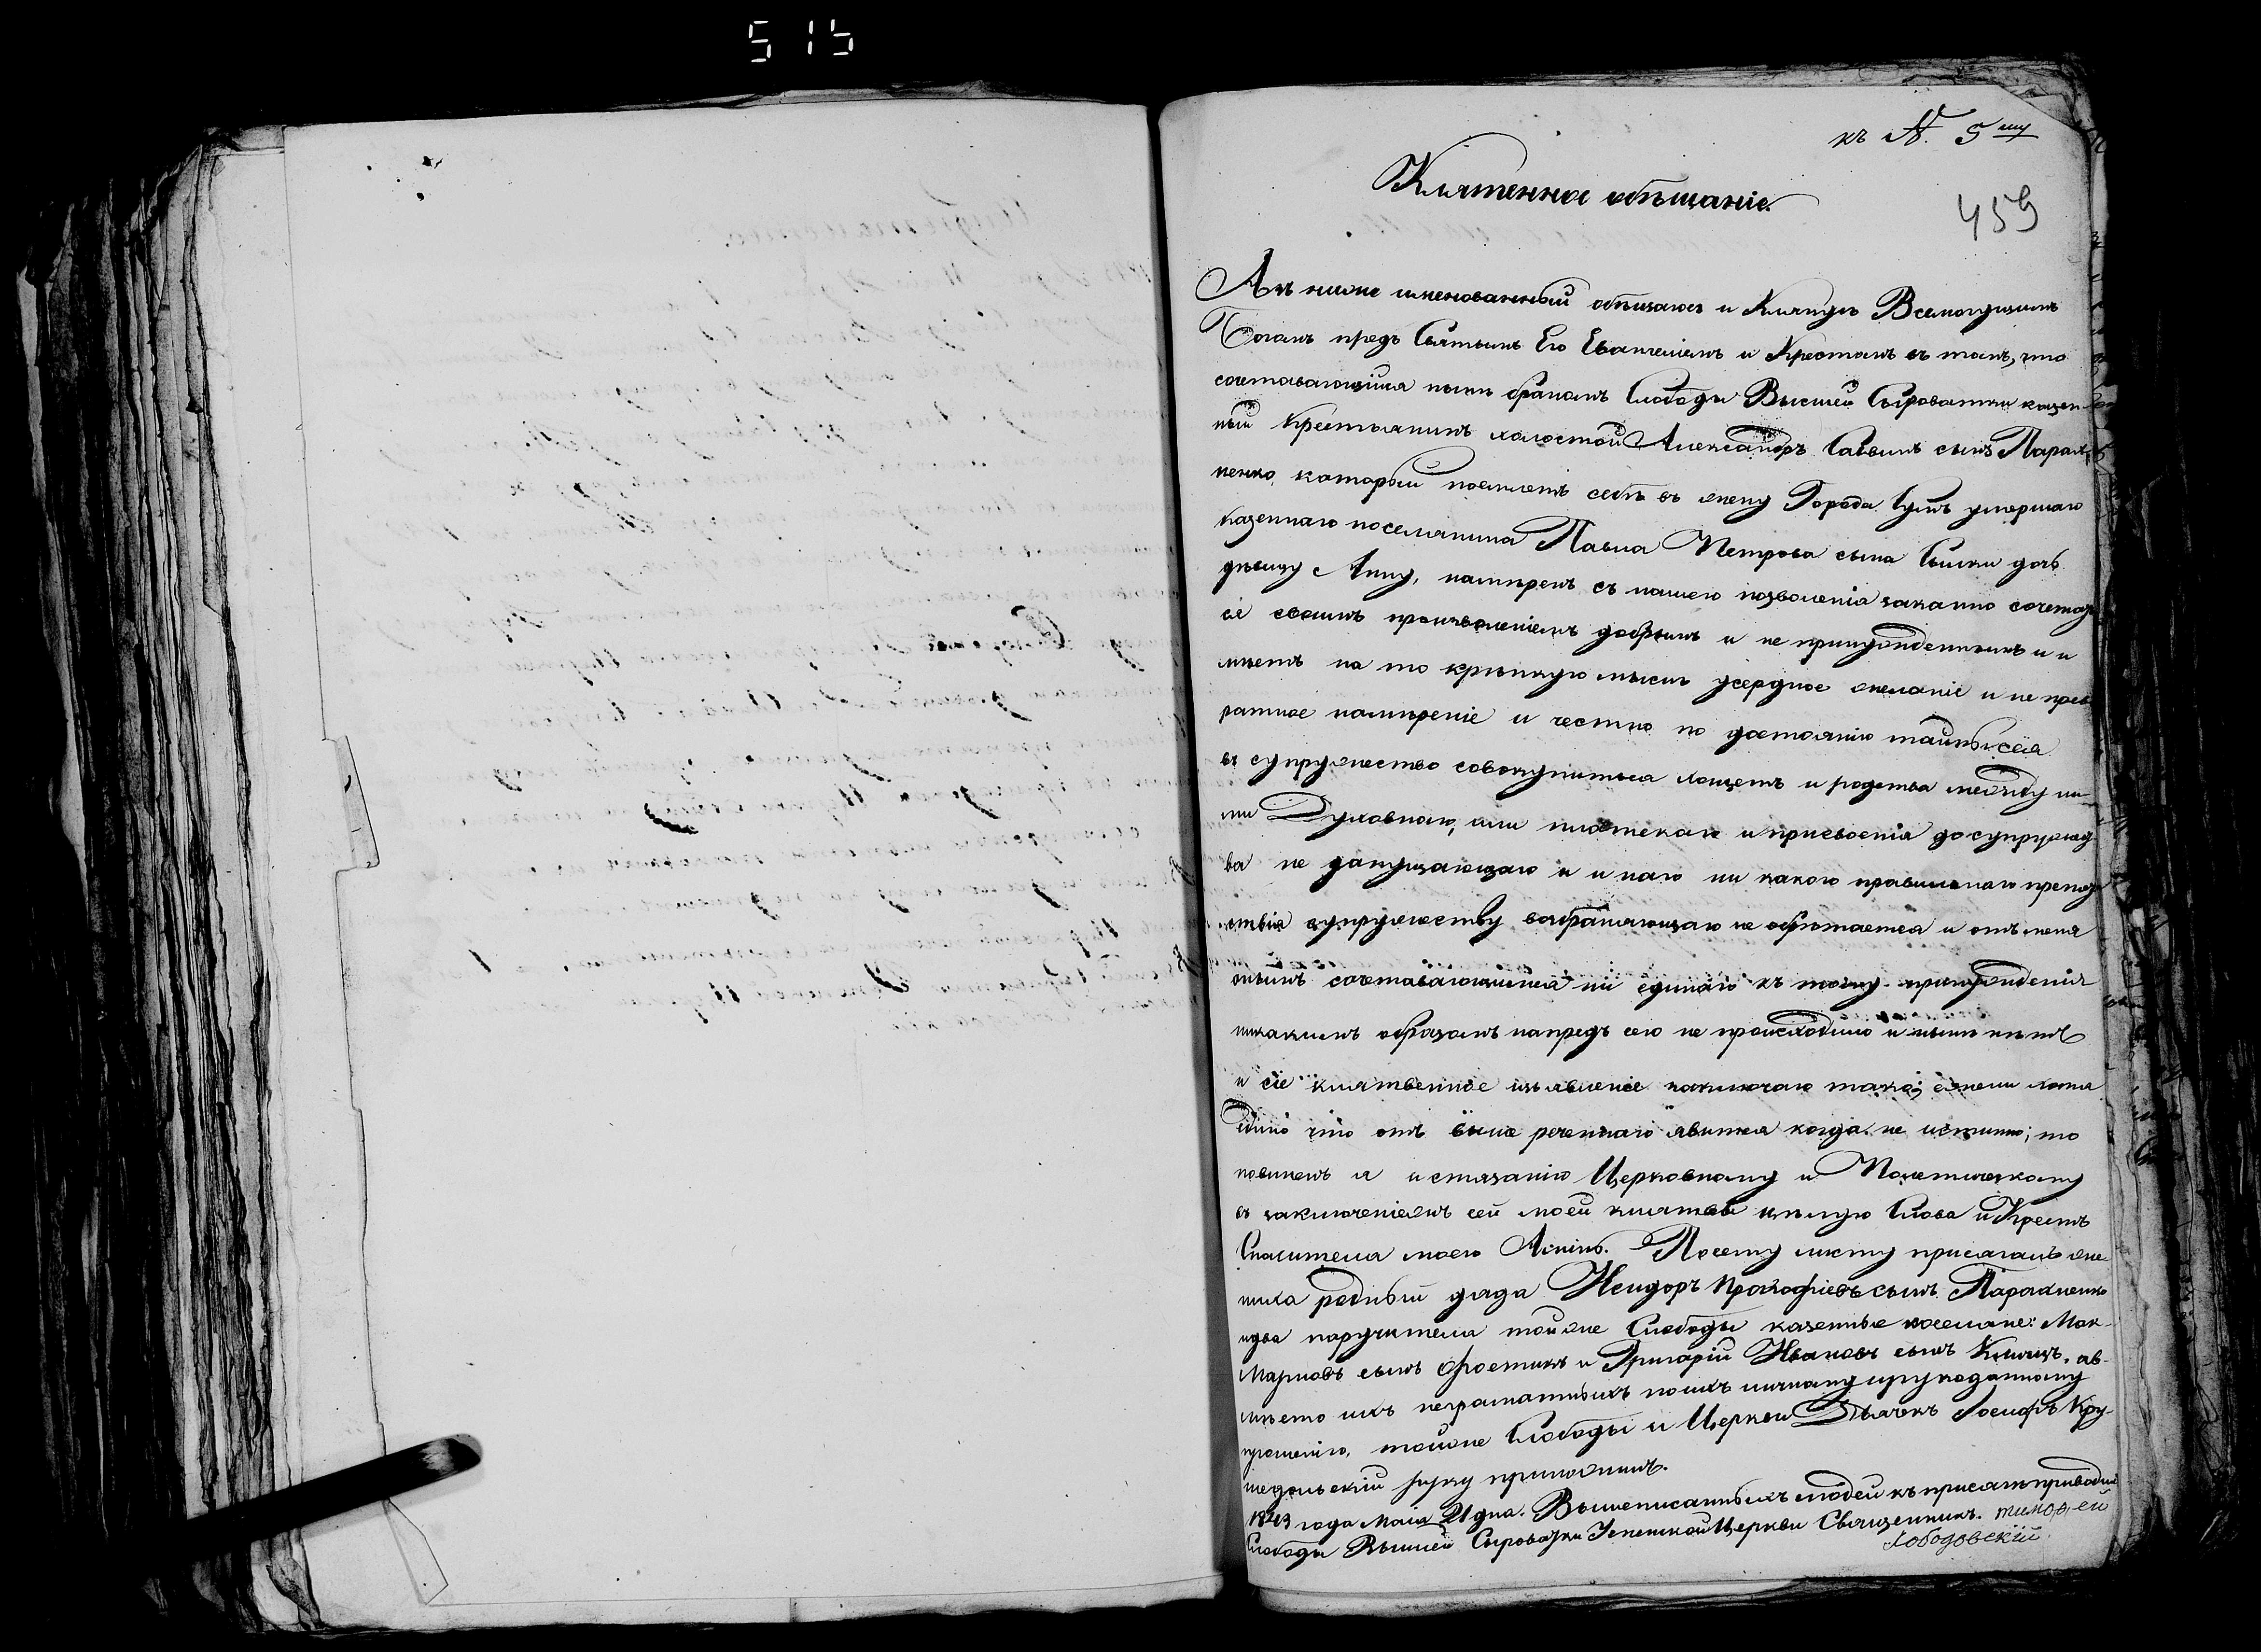 515
къ №. 5му
Клятенное обѣщаніе.
459
Азъ ниже именованный обѣщаюсь и Клянусь Всемогущимъ
Богамъ предъ Святымъ Его Евангеліемъ и Крестомъ въ томъ, что
сочетавающійся нынѣ бракомъ Слободы Высшей Сыроватки казен-
ный Крестьянинъ холостой Александръ Савинъ сынъ Парахо
ненко, который поемлетъ себѣ въ жену Города Сумъ умершаго
казеннаго поселянина Павла Петрова сына дочь
дѣвицу Анну, намѣренъ съ нашего позволенія законно сочетать
ся своимъ произволеніемъ добрымъ и не принужденнымъ и и
мѣетъ на то крѣпкую мысль усердное желаніе и не прев
ратное намѣреніе и честно по достоянію тайны сея
въ супружество совокупиться хощетъ и родства между ни-
ми Духовнаго, или плотскаго и присвоенія до супружес
ва не допущающаго и инаго ни какого правильнаго препят
ствія супружеству возбраняющаго не обрѣтается и отъ меня
онымъ сочетавающимся ни единаго къ тому принужденія
никакимъ образомъ напредъ сего не происходило и нынѣ нѣтъ
и сіе клятвенное изъявленіе заключаю тако; ежели хотя
едино что отъ выше реченнаго явится когда не истинно; то
повиненъ я истязанію Церковному и Полетическому
въ заключеніемъ сей моей клятвы цѣлую Слова и Крестъ
Спасителя моего Аминь. Посему листу присягалъ же-
ниха родный дядя Исидоръ Прокофіевъ сынъ Парахненко
идва поручителя тойже Слободы казенные поселяне: Мак-
Марковъ сынъ и Григорій Ивановъ сынъ а в-
мѣсто ихъ неграматныхъ поихъ личному ирукоданному
прошенію, тойже Слободы и Церкви Дьячекъ Іосифъ Кру-
шедольскій руку приложилъ.
1843 года Маія 21 дня. Вышеписанныхъ людей къ присягѣ приводилъ
Слободы Вышней Сыроватки Успенской Церкви Священникъ. тимоѳей
Лободовскій